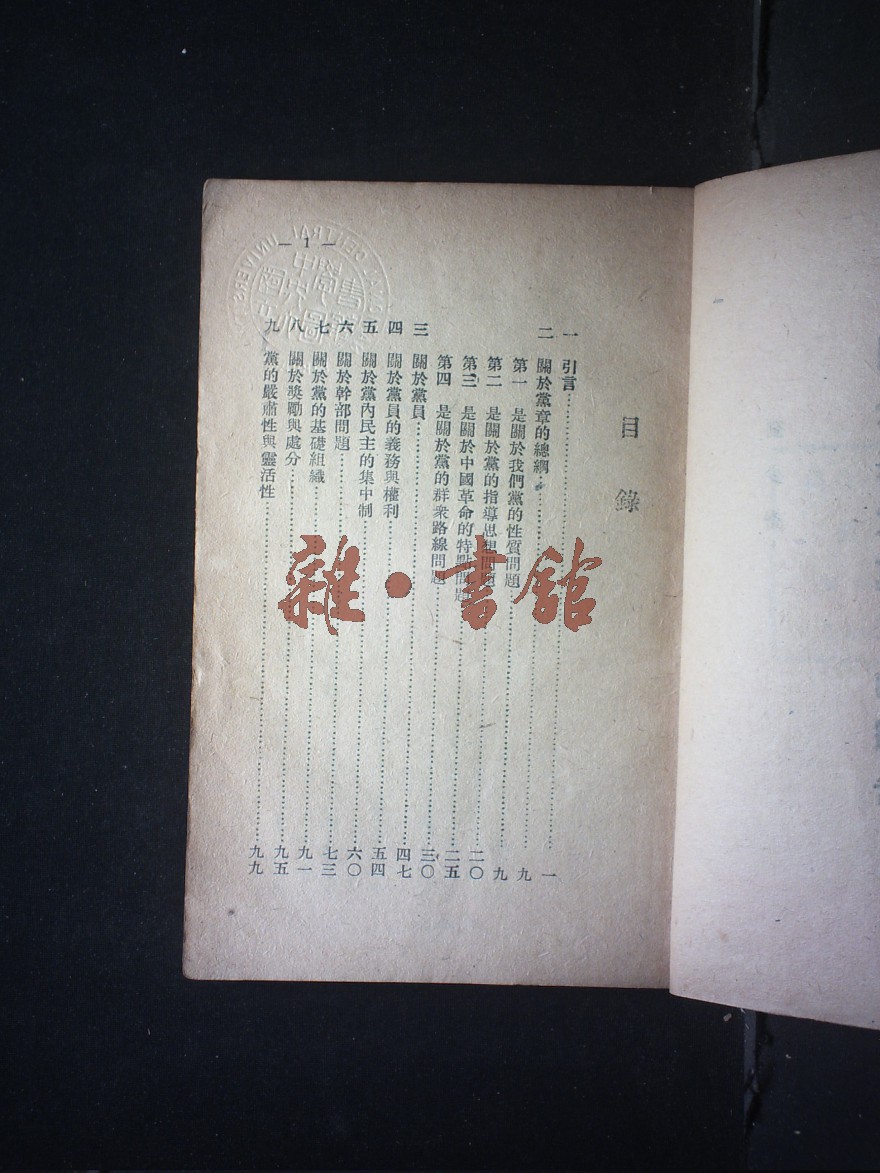 目錄
一 引言……一
二 關於黨章的總綱……九
第一 是關於我們黨的性質問題……九
第二 是關於黨的指導思想問題……二〇
第三 是關於中國革命的特點問題……二五
第四 是關於黨的群衆路線問題……三〇
三 關於黨員……四七
四 關於黨員的義務與權利……五四
五 關於黨內民主的集中制……六〇
六 關於幹部問題……七三
七 關於黨的基礎組織……九一
八 關於獎勵與處分……九五
九 黨的嚴肅性與靈活性……九九
— 1 —
CENTRAL UNIVERS
雜·書館